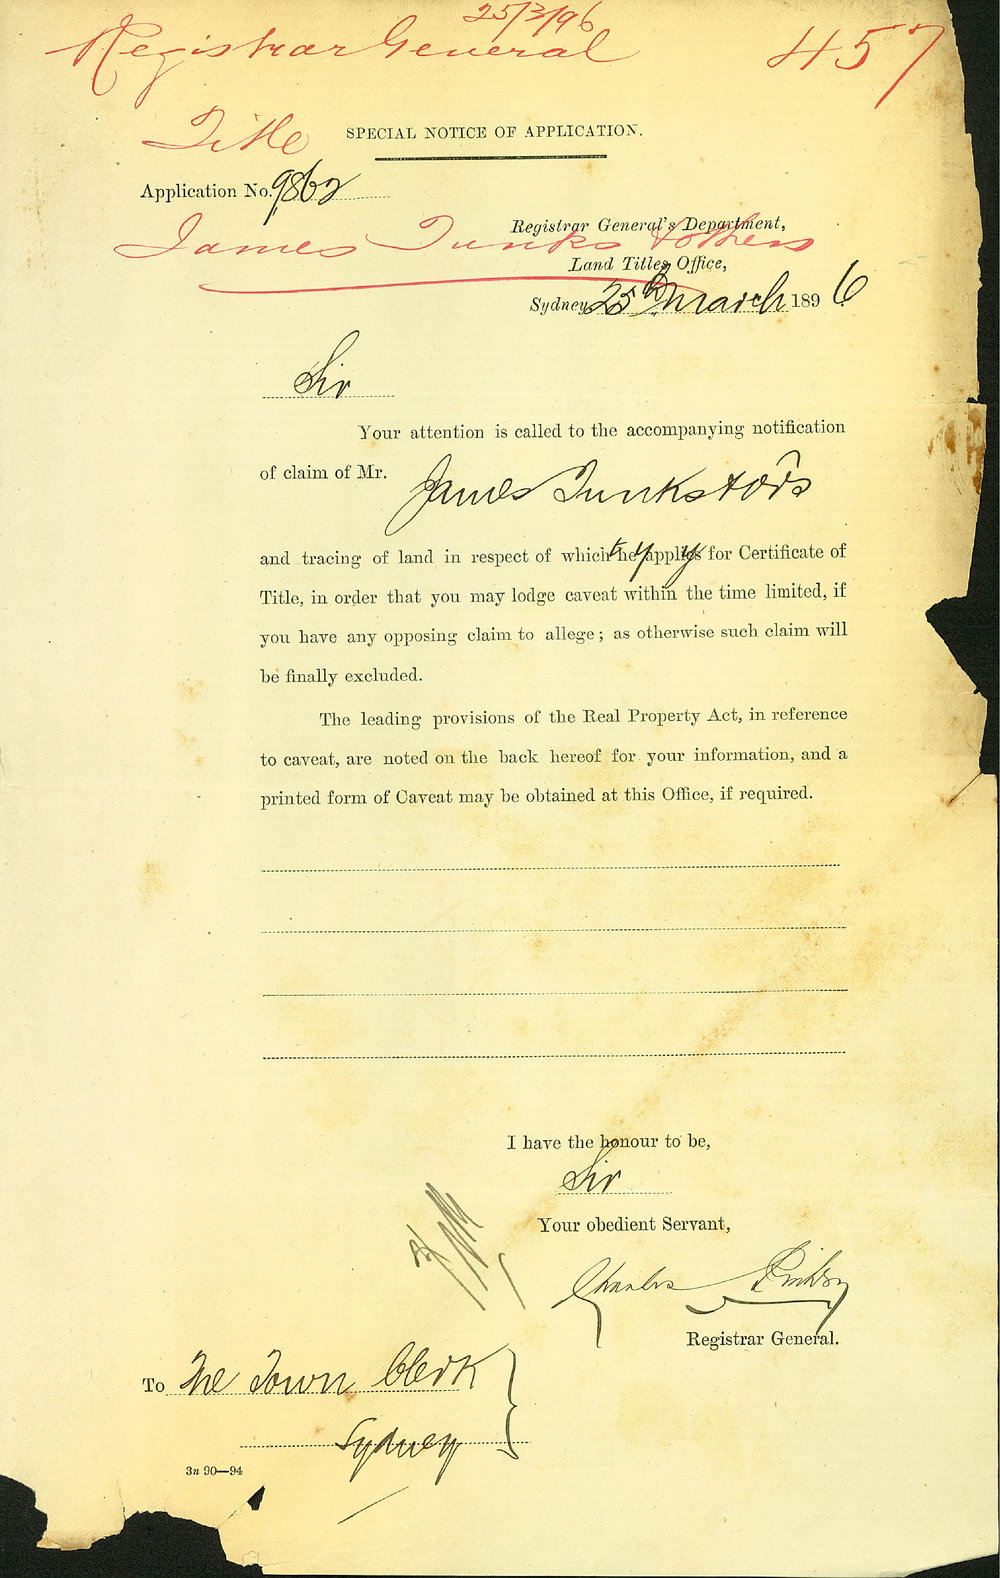 25/3/96
Registrar General 457
Title
SPECIAL NOTICE OF APPLICATION.
Application No. 9862
Registrar General's Department,
James Tunks & others
Land Titles Office,
Sydney 25th March 1896
Sir
Your attention is called to the accompanying notification
of claim of Mr. James Tunks & ors
and tracing of land in respect of which they apply for Certificate of
Title, in order that you may lodge caveat within the time limited, if
you have any opposing claim to allege; as otherwise such claim will
be finally excluded.
The leading provisions of the Real Property Act, in reference
to caveat, are noted on the back hereof for your information, and a
printed form of Caveat may be obtained at this Office, if required.
I have the honour to be,
Sir
Your obedient Servant,
Charles
Registrar General.
To The Town Clerk
Sydney
3n 90—94